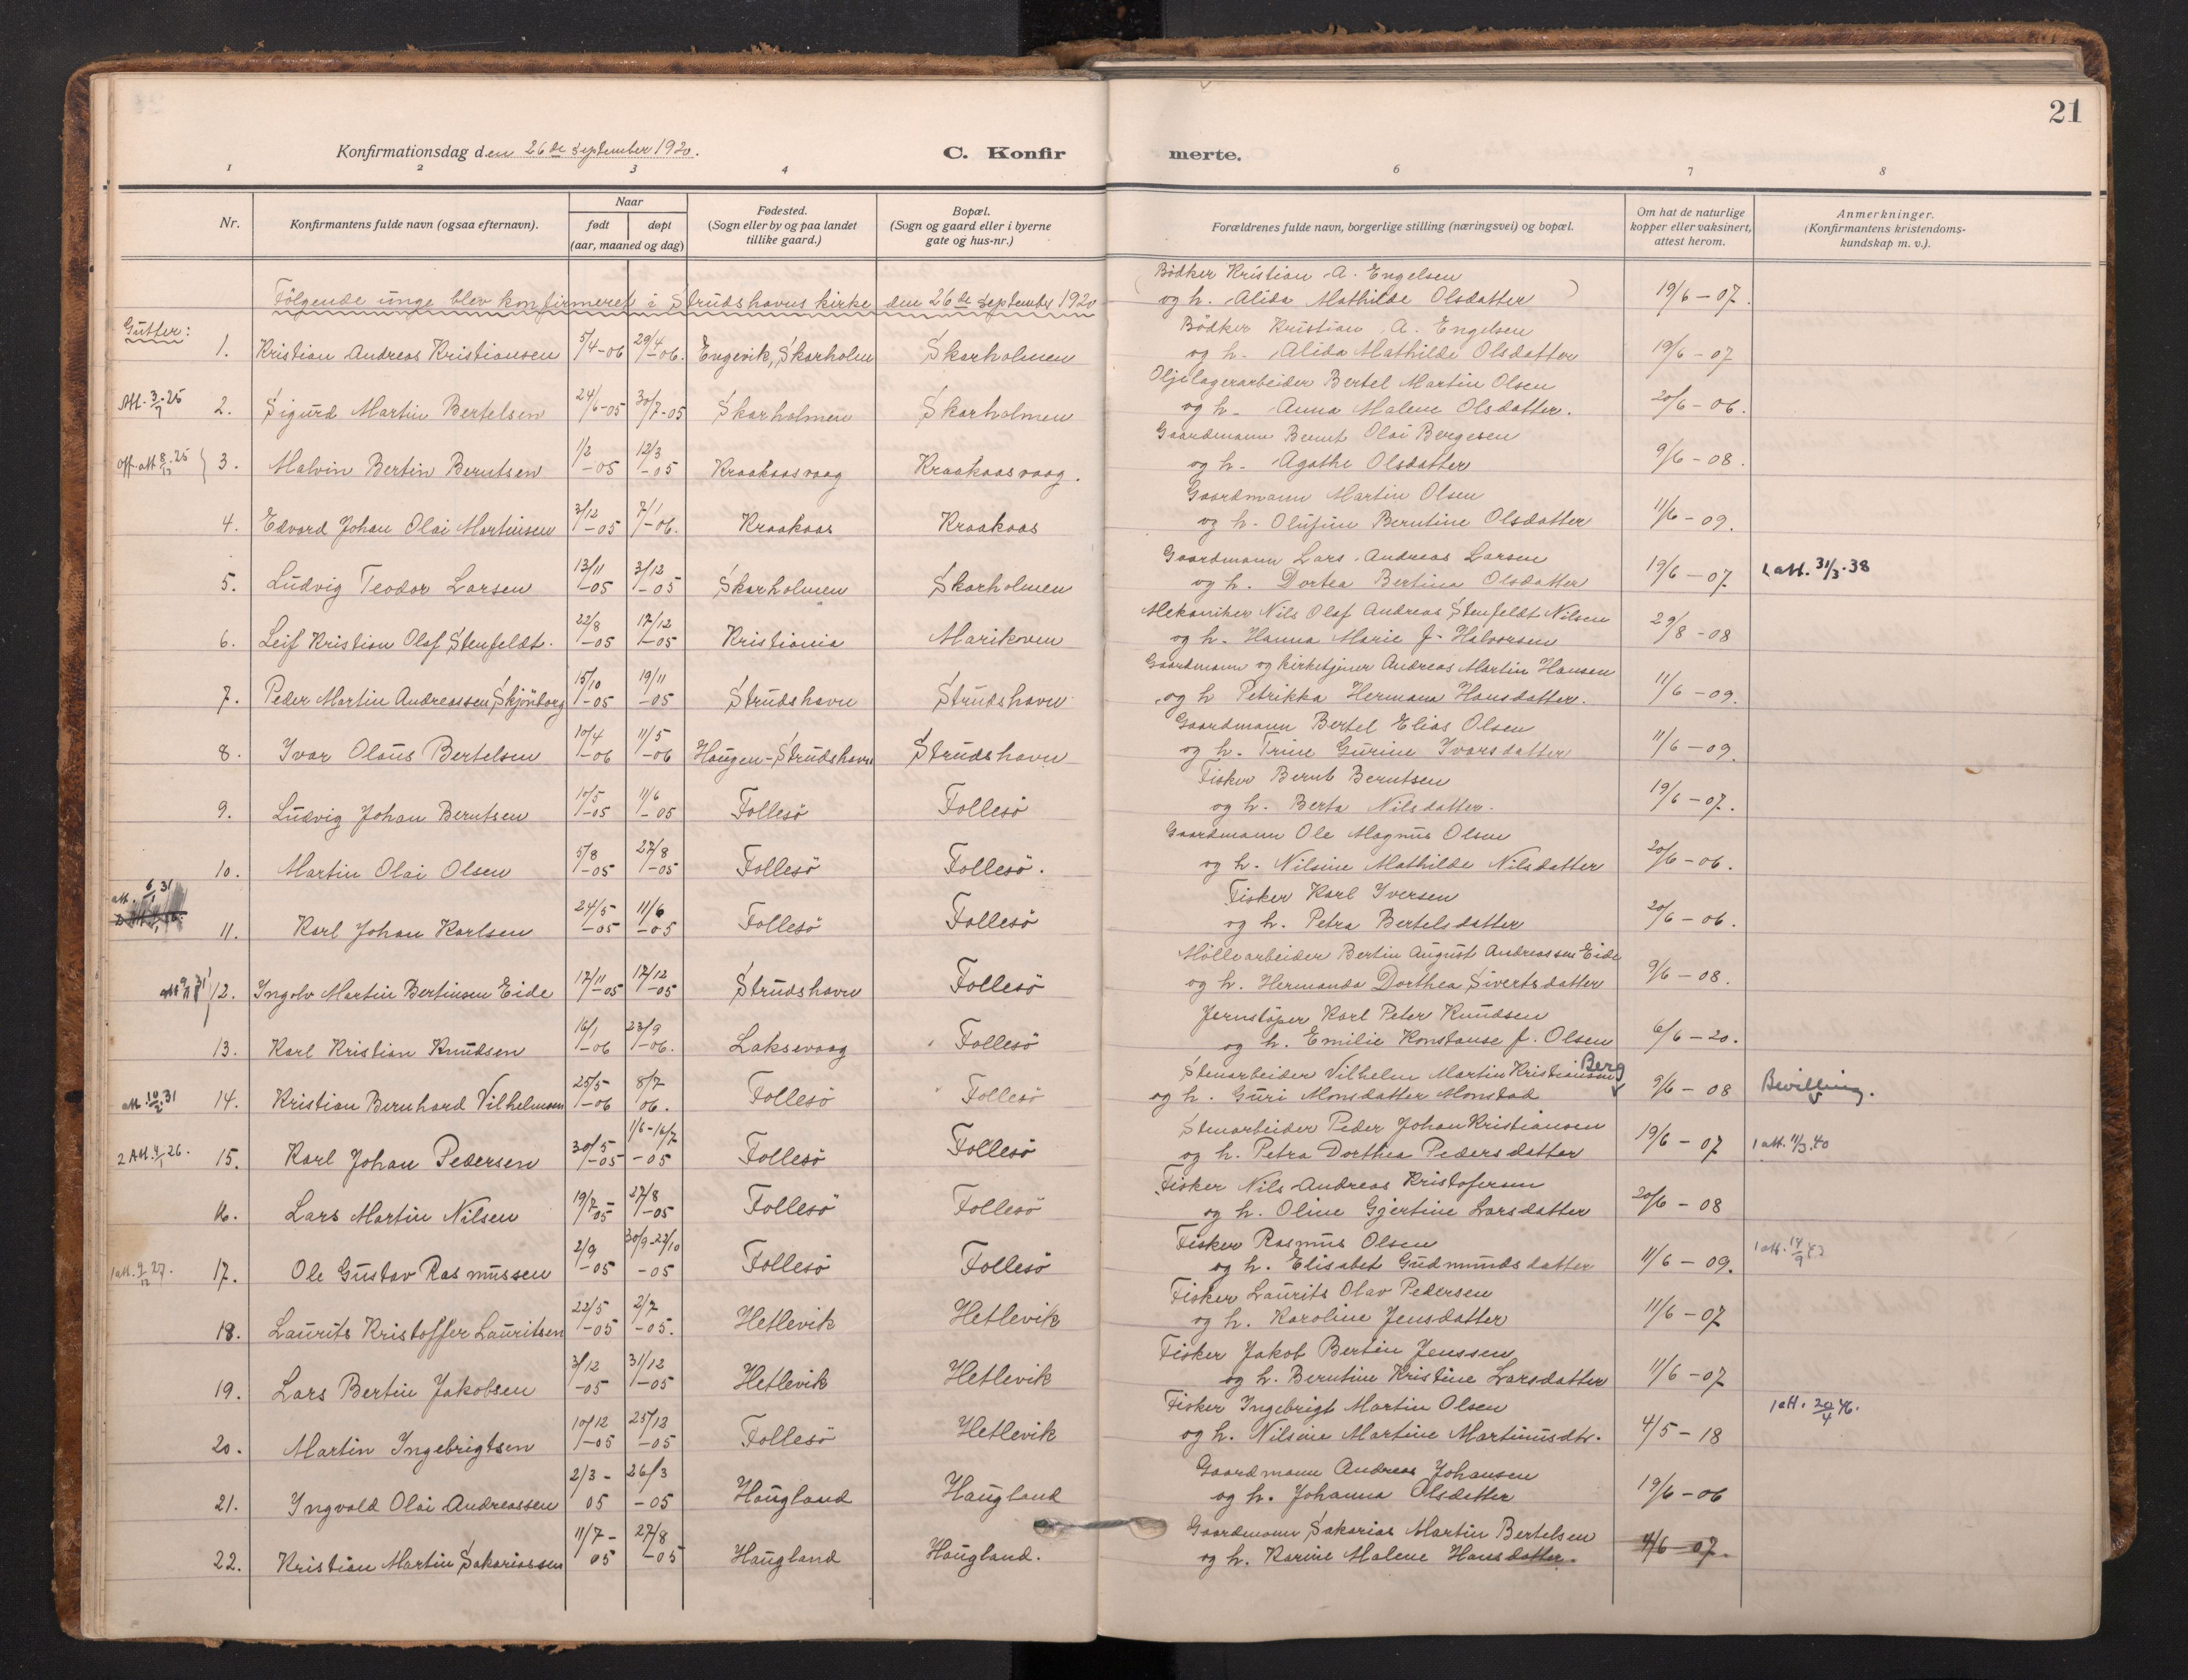 21
Konfirmationsdag den 26de september 1920.
C. Konfirmerte.
1 2 3 4 6 7 8
Nr.
Konfirmantens fulde navn (ogsaa efternavn).
Naar
født døpt
(aar, maaned og dag)
Fødested.
(Sogn eller by og paa landet
tillike gaard.)
Bopæl.
(Sogn og gaard eller i byerne
gate og hus-nr.)
Forældrenes fulde navn, borgerlige stilling (næringsvei) og bopæl.
Om hat de naturlige
kopper eller vaksinert,
attest herom.
Anmerkninger.
(Konfirmantens kristendoms-
kundskap m. v.).
(Bödker Kristian A. Engelsen
og h. Alida Mathilde Olsdatter) 19/6 - 07.
Fölgende unge blev konfirmeret i Strudshavns kirke den 26de september 1920
Gutter:
Bödker Kristian A. Engelsen
1. Kristian Andreas Kristiansen 5/4-06 29/4-06. Engevik, Skarholm Skarholmen og h. Alida Mathilde Olsdatter 19/6 - 07
Oljelagerarbeider Bertel Martin Olsen
Att. 3/7.25 2. Sigurd Martin Bertelsen 24/6-05 30/7-05 Skarholmen Skarholmen og h. Anna Malene Olsdatter. 20/6 - 06.
Gaardmann Bernt Olai Bergesen
Off. att 8/12.25 3. Malvin Bertin Berntsen 1/2-05 12/3-05 Kraakaasvaag Kraakaasvaag. og h. Agathe Olsdatter 9/6 - 08.
Gaardmann Martin Olsen
4. Edvard Johan Olai Martinsen 3/12-05 7/1-06. Kraakaas Kraakaas og h. Olufine Berntine Olsdatter 11/6 - 09.
Gaardmann Lars Andreas Larsen
5. Ludvig Teodor Larsen 13/11-05 3/12-05 Skarholmen Skarholmen og h. Dortea Bertina Olsdatter 19/6 - 07 1 att. 31/3.38
Mekaniker Nils Olaf Andreas Stenfeldt Nilsen
6. Leif Kristian Olaf Stenfeldt. 22/8-05 17/12-05 Kristiania Marikoven og h. Hanna Marie f. Halvorsen 29/8 - 08
Gaardmann og kirketjener Andreas Martin Hansen
7. Peder Martin Andreassen Skjönborg 15/10-05 19/11-05 Strudshavn Strudshavn og h Petrikka Hermana Hansdatter. 11/6 - 09.
Gaardmann Bertel Elias Olsen
8. Ivar Olaus Bertelsen 10/4-06 11/5-06 Haugen-Strudshavn Strudshavn og h. Trine Gurine Ivarsdatter 11/6 - 09.
Fisker Bernt Berntsen
9. Ludvig Johan Berntsen 10/5-05 11/6-05 Follesö Follesö og h. Berta Nilsdatter. 19/6 - 07.
Gaardmann Ole Magnus Olsen
10. Martin Olai Olsen 5/8-05 27/8-05 Follesö Follesö. og h. Nilsine Mathilde Nilsdatter 20/6 - 06.
att. 6/1.31
Fisker Karl Iversen
11. Karl Johan Karlsen 24/5-05 11/6-05 Follesö Follesö og h. Petra Bertelsdatter 20/6 - 06.
Möllearbeider Bertin August Andreassen Eide
12. Ingolv Martin Bertinsen Eide 17/11-05 17/12-05 Strudshavn Follesö og h. Hermanda Dorthea Sivertsdatter 9/6 - 08.
Jernstöper Karl Peter Knudsen
13. Karl Kristian Knudsen 16/1-06 23/9-06. Laksevaag Follesö og h. Emilie Konstanse f. Olsen 6/6 - 20.
Stenarbeider Vilhelm Martin Kristiansen Berg
att. 10/2.31 14. Kristian Bernhard Vilhelmsen 25/5-06 8/7 06. Follesö Follesö og h. Guri Monsdatter Monstad 9/6 - 08 Bevilling.
Stenarbeider Peder Johan Kristiansen
2 Att. 4/1 26. 15. Karl Johan Pedersen 30/5-05 1/6-16/7-05 Follesö Follesö og h. Petra Dorthea Pedersdatter 19/6 - 07 1 att. 11/3.40
Fisker Nils Andreas Kristofersen
16. Lars Martin Nilsen 19/7-05 27/8-05 Follesö Follesö og h. Oline Gjertine Larsdatter 20/6 - 08
Fisker Rasmus Olsen
1 att. 9/12 27. 17. Ole Gustav Rasmussen 2/9-05 30/9-22/10-05 Follesö Follesö og h. Elisabet Gudmundsdatter 11/6 - 09. 1 att. 14/9
Fisker Laurits Olav Pedersen
18. Laurits Kristoffer Lauritsen 22/5-05 2/7-05. Hetlevik Hetlevik og h. Karoline Jensdatter 11/6 - 07
Fisker Jakob Bertin Jenssen
19. Lars Bertin Jakobsen 3/12-05 31/12-05 Hetlevik Hetlevik og h. Berntine Kristine Larsdatter 11/6 - 07
Fisker Ingebrigt Martin Olsen
20. Martin Ingebrigtsen 10/12-05 25/12-05 Follesö Hetlevik og h. Nilsine Martine Martinusdtr. 4/5 - 18 1 att. 20/4 46.
Gaardmann Andreas Johansen
21. Ingvald Olai Andreassen 2/3-05 26/3-05 Haugland Haugland og h. Johanna Olsdatter 19/6 - 06
Gaardmann Sakarias Martin Bertelsen
22. Kristian Martin Sakariassen 11/7-05 27/8-05 Haugland Haugland. og h. Karine Malene Hansdatter. 11/6 - 07.